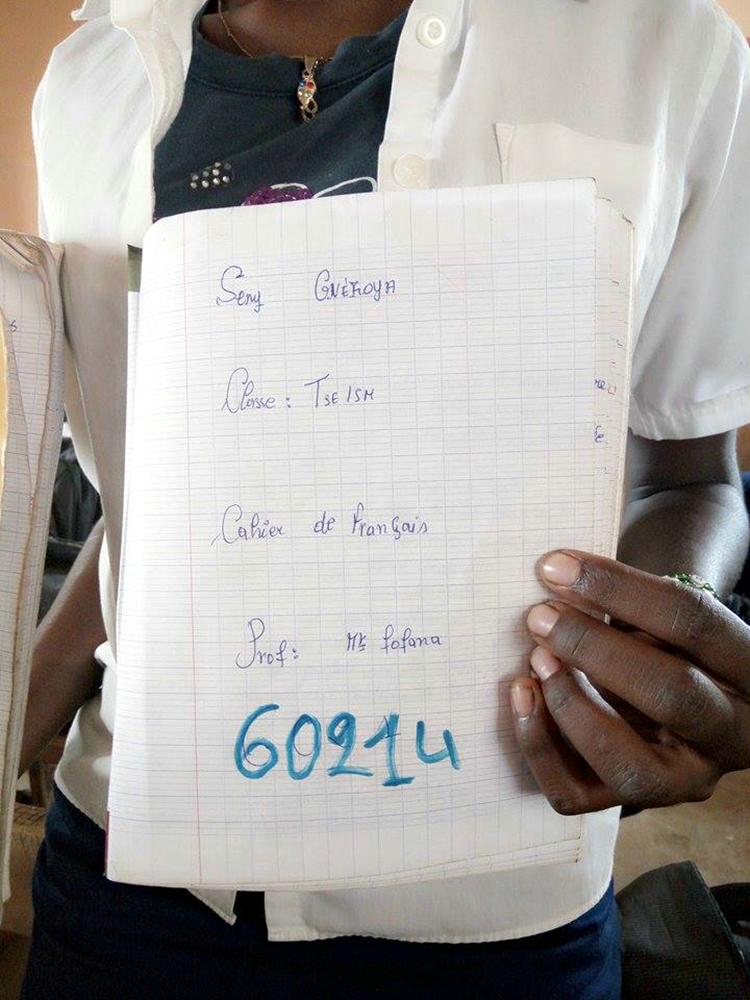 Seny GNÉKOYA
Classe : TSE ISM
Cahier de Français
Prof : Mr fofana
60214